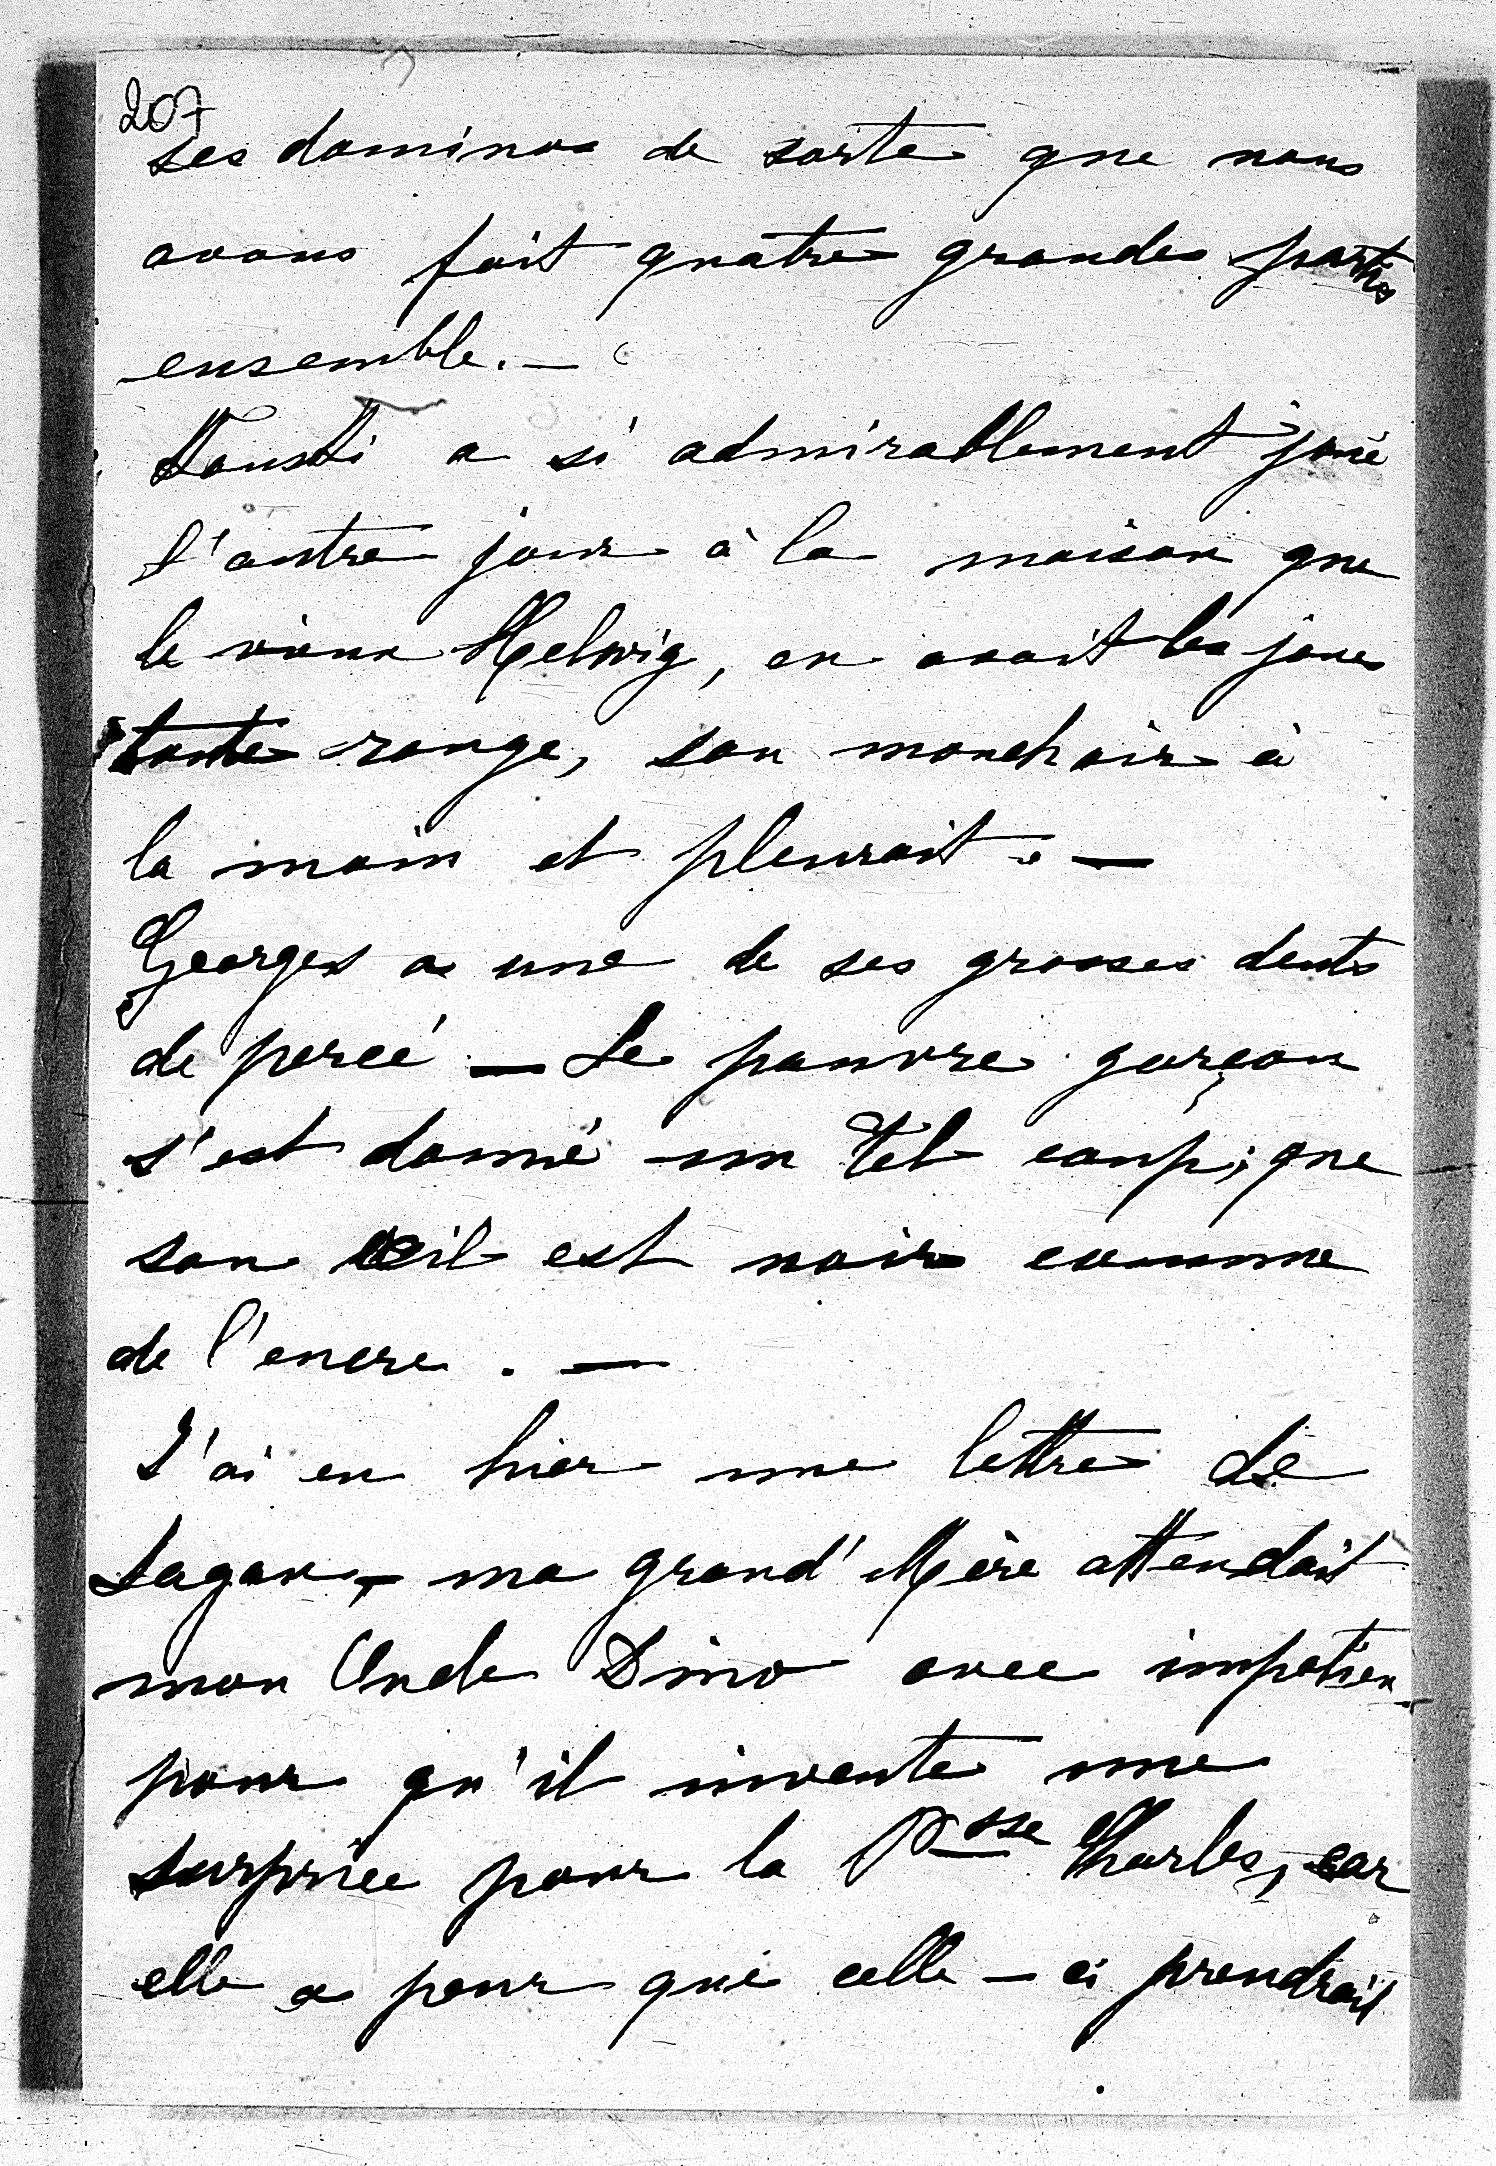 207
les dominos de sorte que nous
avons fait quatre grandes parties
ensemble. —
Tausti a si admirablement joué
l'autre jour à la maison que
le vieux Helwig, en avait les joues
toute rouge, son mouchoir à
la main et pleurait. —
Georges a une de ses grosses dents
de percé — Le pauvre garçon
s'est donné un tel coup, que
son œil est noir comme
de l'encre. —
J'ai eu hier une lettre de
Sagan, ma grand'Mère attendait
mon Oncle Dino avec impatien-
pour qu'il invente une
surprise pour la Psse Charles, car
elle a peur que celle-ci prendrait